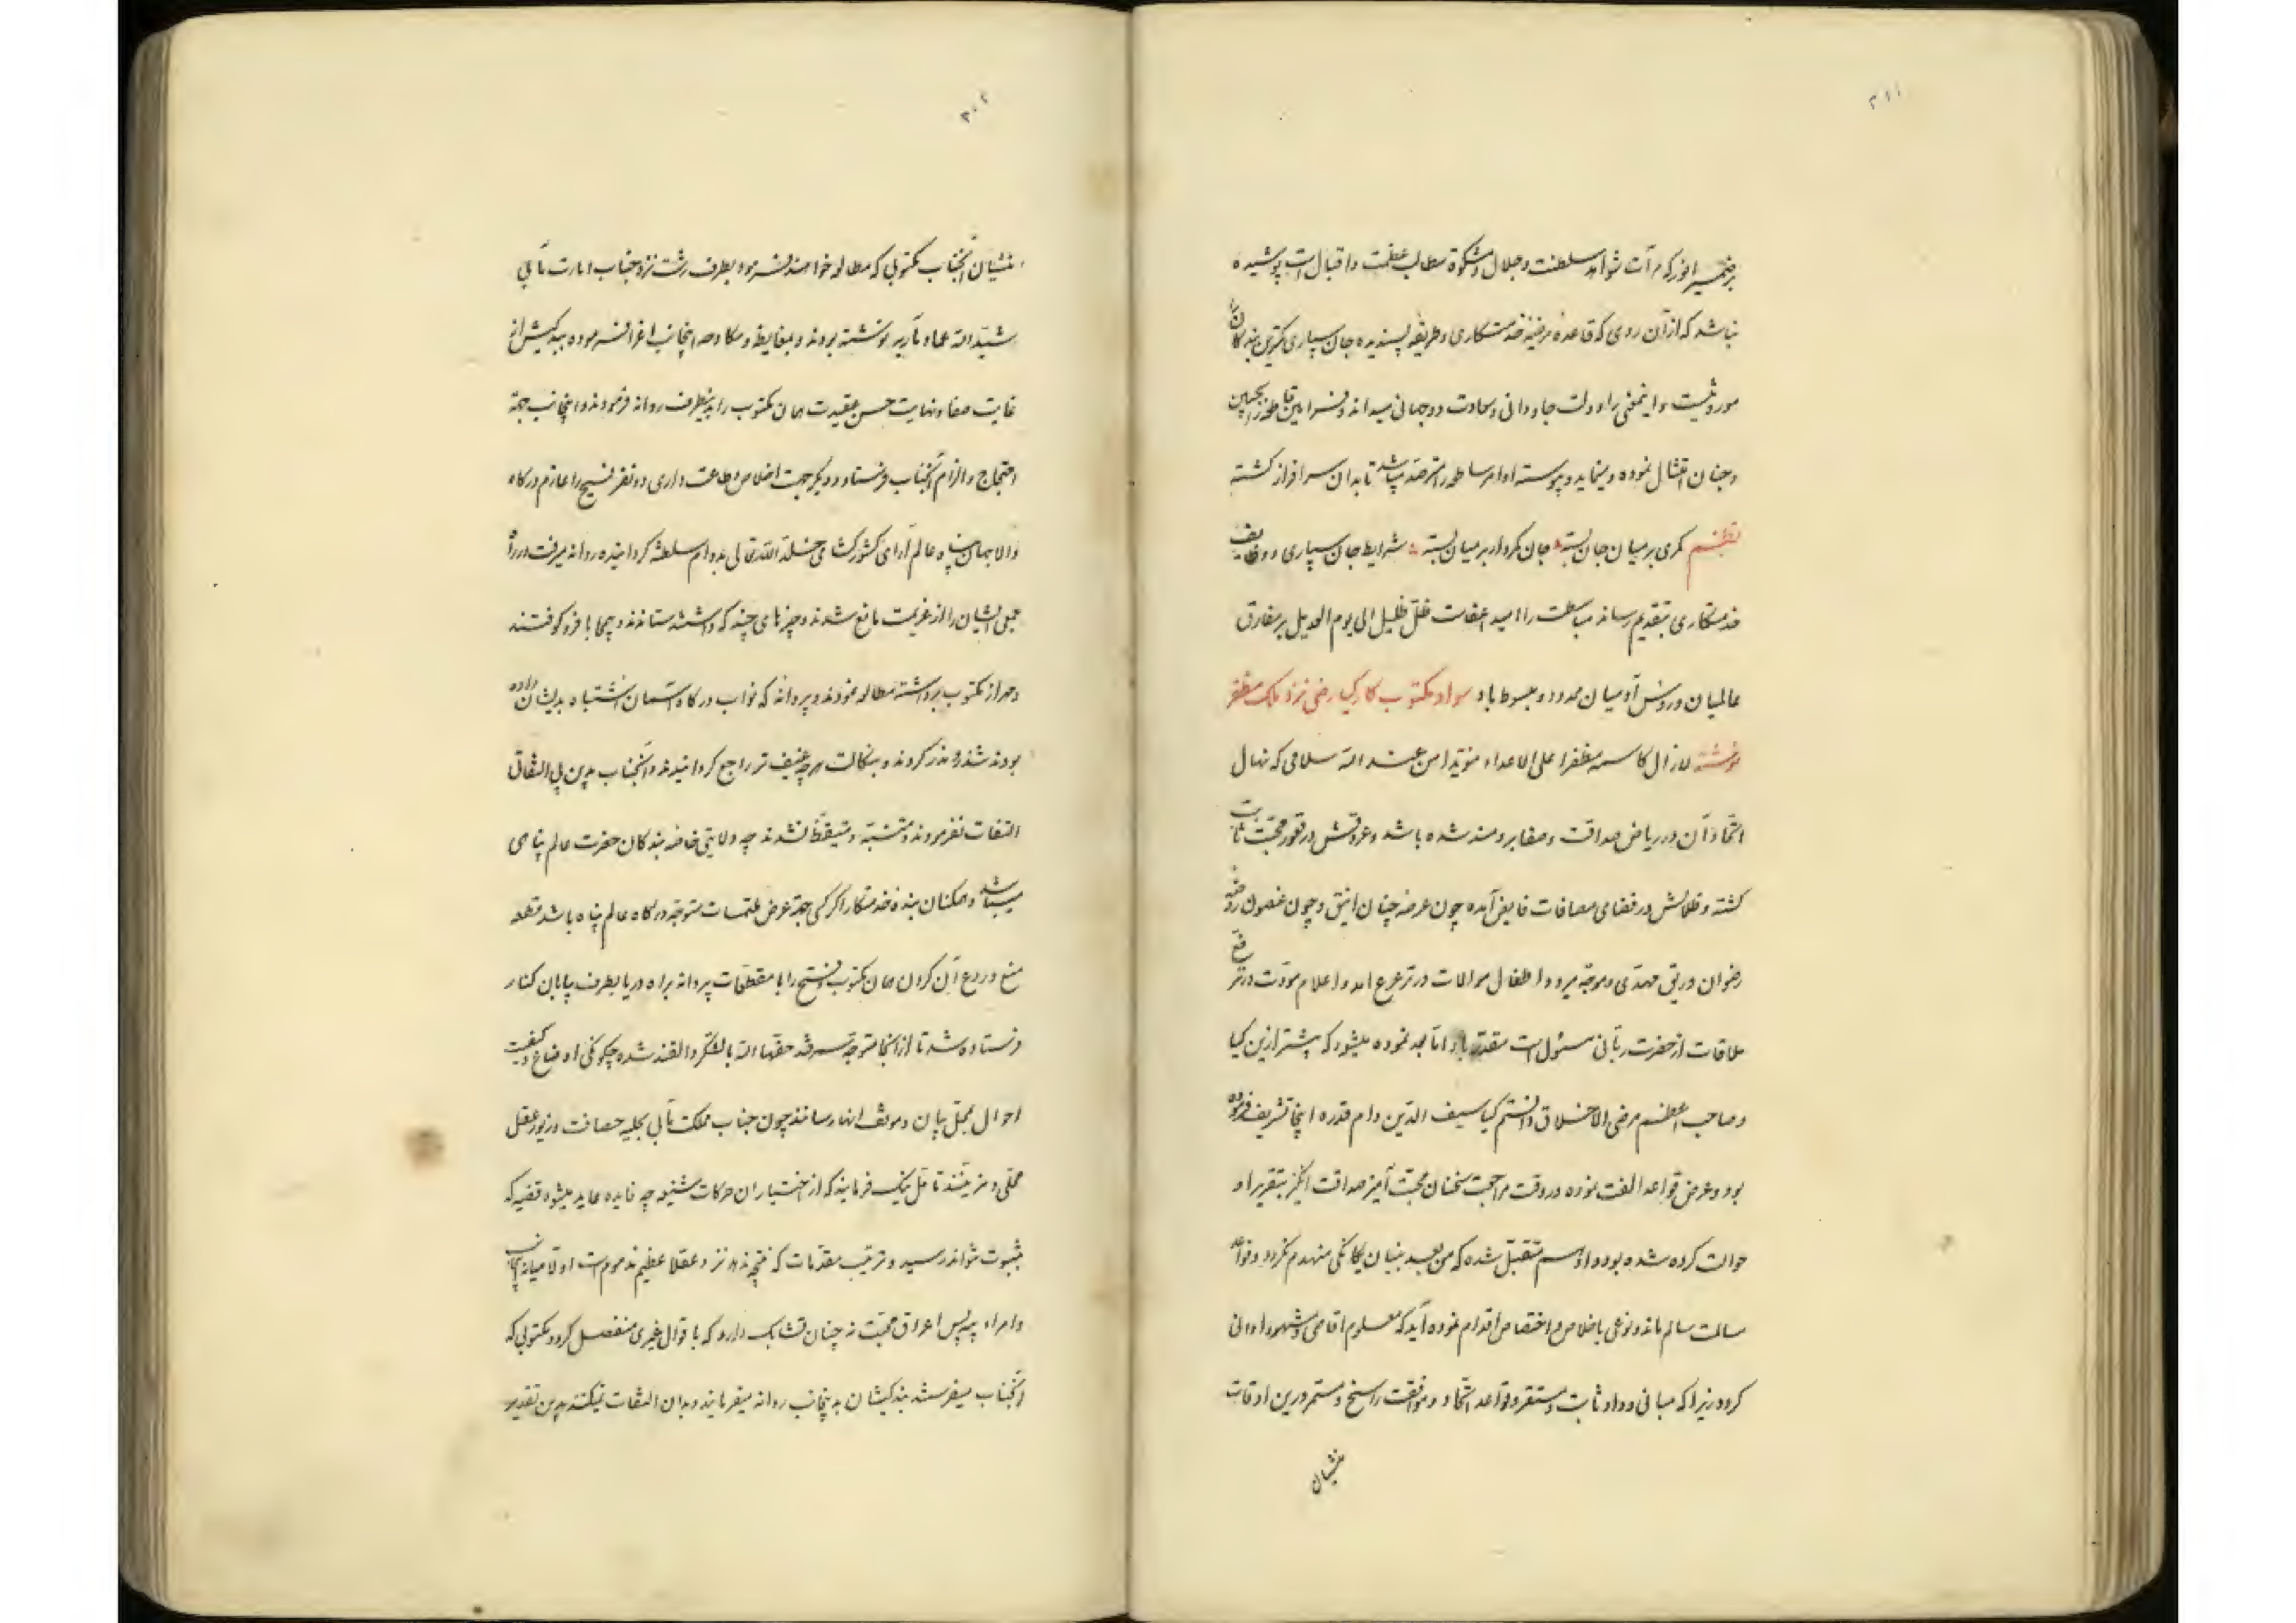 ۲۱۱
بر ضمیر انور که مرآت شواهد سلطنت و جلال و مشکوة مطالب عظمت و اقبال است پوشیده
نباشد که از آن روی که قاعده مرضیه خدمتکاری و طریقه پسندیده جان سپاری کمترین بندگان
موروثیست و اینمعنی را دولت جاودانی و سعادت دو جهانی میداند و فرامین قاطعه را بجهین
و جنان امتثال نموده و مینماید و پیوسته اوامر ساطعه را مترصد میباشد تا بدان سرافراز گشته
نظم کمری بر میان جان بسته جان کمروار بر میان بسته شرایط جان سپاری و وظایف
خدمتکاری بتقدیم رساند ظل ظلیل الی یوم الرحیل بر مفارق
عالمیان و رؤس آدمیان ممدود و مبسوط باد سواد مکتوب کارکیا رضی نزد ملک مظفر
نوشته لازال کاسمه مظفرا علی الاعداء مؤیدا من عند الله سلامی که نهال
اتحاد آن در ریاض صداقت و صفا برومند شده باشد و عروقش در قعور محبت ثابت
گشته و ظلالش در فضای مصافات فایض آمده چون عرصه جنان انیق و چون غصون روضه
رضوان وریق مهدی و موجه میرود و اطفال موالات در ترعرع آمد و اعلام مودت در ترفع
ملاقات از حضرت ربانی مسئول است مقدر باد اما بعد نموده میشود که پیشتر ازین کیا
و صاحب اعظم مرضی الاخلاق و الشیم کیا سیف الدین دام قدره اینجا تشریف فرموده
بود و عرض قواعد الفت نموده در وقت مراجعت سخنان محبت آمیز صداقت انگیز بتقریر او
حوالت کرده شده بود و او هم متقبل شده که من بعد بنیان یگانگی منهدم نگردد و قواعد
سالمت سالم ماند و نوعی باخلاص و اختصاص اقدام نموده آید که معلوم اقاصی و مشهود ادانی
گردد زیرا که مبانی وداد ثابت و مستقر و قواعد اتحاد و موافقت راسخ و مستمر درین اوقات
منشیان
۳۰۲
منشیان آنجناب مکتوبی که مطالعه خواهند فرمود بطرف رشت نزد جناب امارت مآبی
شیّد الله عماد مآربه نوشته بودند و بمغایظه و مکاوحه اینجانب اغرا فرموده بیدکیش از
غایت صفا و نهایت حسن عقیدت همان مکتوب را بدینطرف روانه فرمودند و اینجانب جهة
احتجاج و الزام آنجناب فرستاد و دیگر جهت اخلاص و طاعت داری دو نفر فسیح را عازم درگاه
والا جهان پناه عالم آرای کشورگشای خلد الله تعالی بدوام سلطنته گردانیده روانه میرفت در راه
جمعی ایشان را از عزیمت مانع شدند و چیزهای چند که داشتند ستاندند و بیجا با فرو کوفتند
و مهر از مکتوب برداشته مطالعه نمودند و پروانه که نواب درگاه آسمان اشتباه بدیشان داده
بودند شذر و مذر کردند و بنکالت هر چه عنیف تر راجع گردانیدند و آنجناب بدین
التفات نفرمودند و متنبه و متیقظ نشدند چه ولایتی خاصه بندگان حضرت عالم پناهی
میباشد و همگنان بنده خدمتکار اگر کسی جهة عرض ملتمسات متوجه درگاه عالم پناه باشد
منع و ردع آن کردن همان مکتوب را با مقطعات پروانه براه دریا بطرف پایان کنار
فرستاده شد تا از آنجا متوجه سمرقند حفها الله بالسکر و القند شده چگونگی اوضاع و کیفیت
احوال بمحل پیان و موقف انها رسانند چون جناب مملکت مآبی بحلیه حصافت و زیور عقل
محلی و مزینند تأمل نیک فرمایند که از اختیار ان حرکات شنیعه چه فایده عاید میشود قضیه که
بثبوت نتواند رسید و ترتیب مقدمات که نتیجه ندهد نزد عقلا عظیم مذموم است اولا میانه اینجانب
و امراء پیه پس اعراق محبت نه چنان تشابک دارد که باقوال غیری منفصل گردد مکتوبی که
آنجناب میفرستند بندگیشان بدینجانب روانه میفرمایند و بدان التفات نمیکنند بدین تقدیر